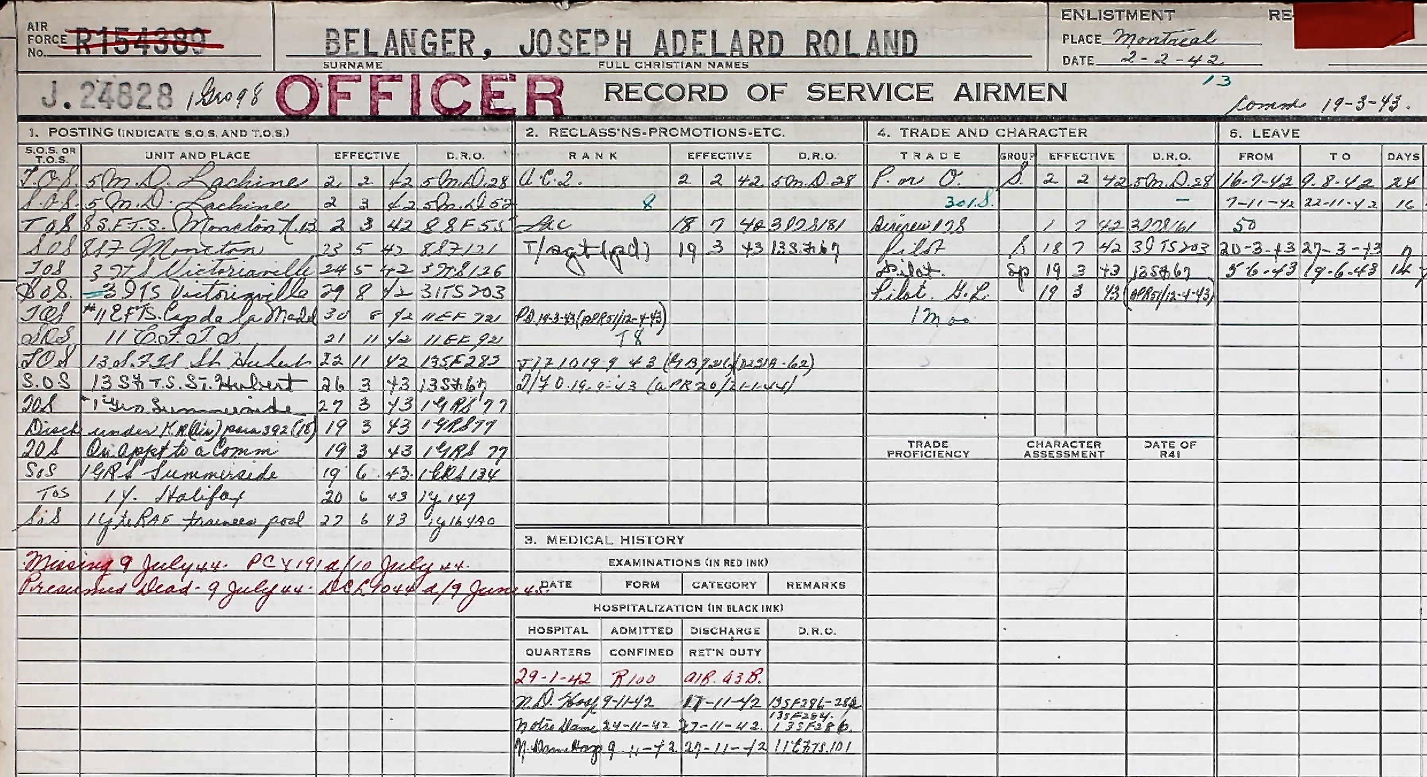 AIR FORCE No. R154389
BELANGER, JOSEPH ADELARD ROLAND
SURNAME FULL CHRISTIAN NAMES
ENLISTMENT RE
PLACE Montreal
DATE 2-2-42
13
J.24828 OFFICER RECORD OF SERVICE AIRMEN
Comm 19-3-43.
1. POSTING (INDICATE S.O.S. AND T.O.S.)
S.O.S. OR T.O.S. UNIT AND PLACE EFFECTIVE D.R.O.
T.O.S. 5 M.D. Lachine 2 2 42 5 M.D. 28
S.O.S. 5 M.D. Lachine 2 3 42
TOS 8 S.F.T.S. Moncton 2 3 42
SOS Moncton 23 5 42
TOS 3 ITS Victoriaville 24 5 42 126
S.O.S. 3 ITS Victoriaville 29 8 42 3ITS 203
TOS #11 EFTS. Cap de la Madel 30 8 42 11 EF
11 E.F.T.S. 21 11 42 11 EF
TOS 13 S.F.T.S St. Hubert 22 11 42 13SF 282
S.O.S 13 SFTS. St. Hubert 26 3 43 13SF 67
TOS Summerside 27 3 43 1GRS 77
Disch under K.R.(Air) para 392 (18) 19 3 43 1GRS 77
TOS On appt to a Comm 19 3 43 1GRS 77
SOS 1GRS Summerside 19 6 43 1GRS 134
TOS 1Y. Halifax 20 6 43 1Y 147
SOS 1Y to RAF trainees pool 27 6 43
Missing 9 July 44. 10 July 44.
Presumed Dead - 9 July 44 - d/9 June 45.
2. RECLASS'NS-PROMOTIONS-ETC.
RANK EFFECTIVE D.R.O.
A.C.2. 2 2 42 5 M.D. 28
8
Lac 18 7 42
T/Sgt (pd) 19 3 43 13SF 67
P.O. 19-3-43 (APR51/12-4-43)
T8
19 9 43
19-9-43 (APR20/
3. MEDICAL HISTORY
EXAMINATIONS (IN RED INK)
DATE FORM CATEGORY REMARKS
HOSPITALIZATION (IN BLACK INK)
HOSPITAL ADMITTED DISCHARGE D.R.O.
QUARTERS CONFINED RET'N DUTY
29-1-42 R100 A1B. A3B.
N.D. Hosp 9-11-42 17-11-42 13SF286-282
13SF284.
Notre Dame 24-11-42 27-11-42. 13SF286.
9 11-42 27-11-42 11EFTS.101
4. TRADE AND CHARACTER
TRADE GROUP EFFECTIVE D.R.O.
P. or O. S. 2 2 42 5 M.D. 28
301S.
Aircrew 1 7 42
Pilot S 18 7 42 3ITS 203
Pilot Sp 19 3 43 13SF 67
Pilot G.L. 19 3 43 (APR51/12-4-43)
TRADE PROFICIENCY CHARACTER ASSESSMENT DATE OF R41
6. LEAVE
FROM TO DAYS
16-7-42 9-8-42 24
7-11-42 22-11-42 16
50
20-3-43 27-3-43 7
5-6-43 19-6-43 14